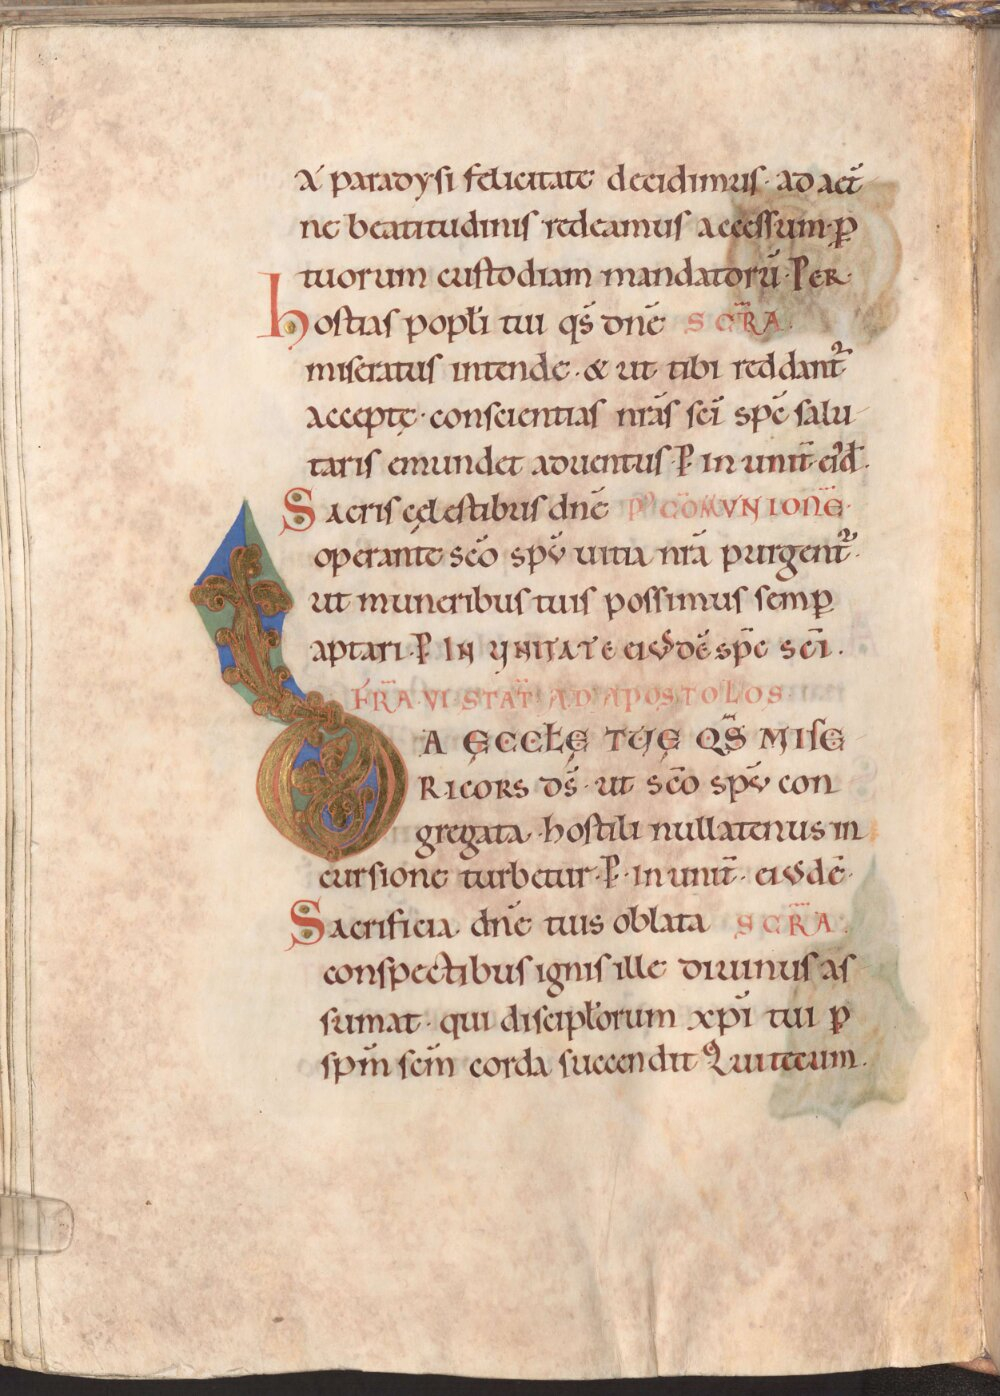 A paradysi felicitate decidimus · ad aet̄
ne beatitudinis redeamus accessum · p̱
tuorum custodiam mandatorū · Per ·
hostias popłi tui qs̄ dnē SCR̄A ·
miseratus intende · & ut tibi reddant᷑
acceptę · conscientias nrās sc̄i spc̄ salu
taris emundet aduentus · P in unit̄ ei'd̄ ·
Sacris cęlestibus dnē P' CŌMVNIONĒ
operante sc̄o spū uitia nrā purgent᷑ ·
ut muneribus tuis possimus semp̱
aptari · P IN VNITATE eiusdē spc̄ sc̄i ·
FR̄A VI · STAT̄ · AD APOSTOLOS ·
DA ĘCCLĘ TUĘ QS̄ MISE
RICORS ds̄ · ut sc̄o spū con
gregata · hostili nullatenus in
cursione turbetur · P · in unit̄ · eiusdē ·
Sacrificia dnē tuis oblata SCR̄A ·
conspectibus ignis ille diuinus as
sumat · qui discipłorum xpī tui p̱
spm̄ scm̄ corda succendit Qui tecum ·